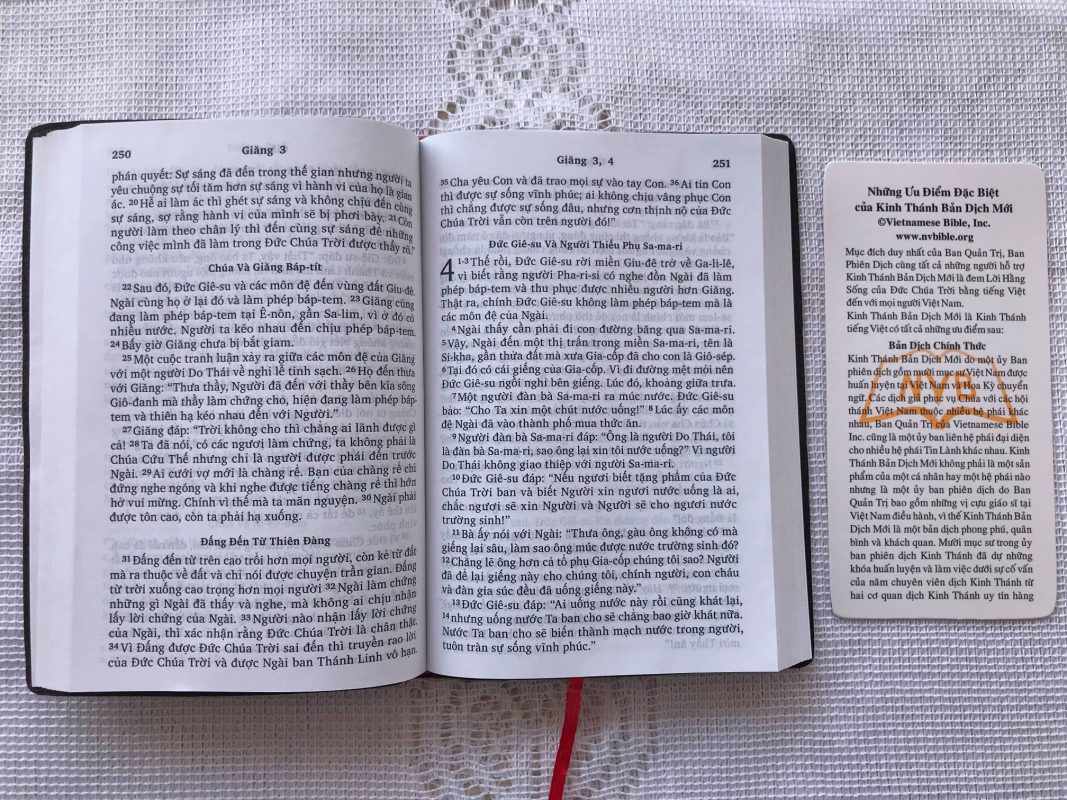 250
Giăng 3
phán quyết: Sự sáng đã đến trong thế gian nhưng người ta
yêu chuộng sự tối tăm hơn sự sáng vì hành vi của họ là gian
ác. 20 Hễ ai làm ác thì ghét sự sáng và không chịu đến cùng
sự sáng, sợ rằng hành vi của mình sẽ bị phơi bày. 21 Còn
người làm theo chân lý thì đến cùng sự sáng để những
công việc mình đã làm trong Đức Chúa Trời được thấy rõ.”
Chúa Và Giăng Báp-tít
22 Sau đó, Đức Giê-su và các môn đệ đến vùng đất Giu-đê.
Ngài cùng họ ở lại đó và làm phép báp-tem. 23 Giăng cũng
đang làm phép báp-tem tại Ê-nôn, gần Sa-lim, vì ở đó có
nhiều nước. Người ta kéo nhau đến chịu phép báp-tem.
24 Bấy giờ Giăng chưa bị bắt giam.
25 Một cuộc tranh luận xảy ra giữa các môn đệ của Giăng
với một người Do Thái về nghi lễ tinh sạch. 26 Họ đến thưa
với Giăng: “Thưa thầy, Người đã đến với thầy bên kia sông
Giô-đanh mà thầy làm chứng cho, hiện đang làm phép báp-
tem và thiên hạ kéo nhau đến với Người.”
27 Giăng đáp: “Trời không cho thì chẳng ai lãnh được gì
cả! 28 Ta đã nói, có các ngươi làm chứng, ta không phải là
Chúa Cứu Thế nhưng chỉ là người được phái đến trước
Ngài. 29 Ai cưới vợ mới là chàng rể. Bạn của chàng rể chỉ
đứng nghe ngóng và khi nghe được tiếng chàng rể thì hớn
hở vui mừng. Chính vì thế mà ta mãn nguyện. 30 Ngài phải
được tôn cao, còn ta phải hạ xuống.
Đấng Đến Từ Thiên Đàng
31 Đấng đến từ trên cao trổi hơn mọi người, còn kẻ từ đất
mà ra thuộc về đất và chỉ nói được chuyện trần gian. Đấng
từ trời xuống cao trọng hơn mọi người 32 Ngài làm chứng
những gì Ngài đã thấy và nghe, mà không ai chịu nhận
lấy lời chứng của Ngài. 33 Người nào nhận lấy lời chứng
của Ngài, thì xác nhận rằng Đức Chúa Trời là chân thật.
34 Vì Đấng được Đức Chúa Trời sai đến thì truyền rao lời
của Đức Chúa Trời và được Ngài ban Thánh Linh vô hạn.
Giăng 3, 4
251
35 Cha yêu Con và đã trao mọi sự vào tay Con. 36 Ai tin Con
thì được sự sống vĩnh phúc; ai không chịu vâng phục Con
thì chẳng được sự sống đâu, nhưng cơn thịnh nộ của Đức
Chúa Trời vẫn còn trên người đó!”
Đức Giê-su Và Người Thiếu Phụ Sa-ma-ri
4 1-3 Thế rồi, Đức Giê-su rời miền Giu-đê trở về Ga-li-lê,
vì biết rằng người Pha-ri-si có nghe đồn Ngài đã làm
phép báp-tem và thu phục được nhiều người hơn Giăng.
Thật ra, chính Đức Giê-su không làm phép báp-tem mà là
các môn đệ của Ngài.
4 Ngài thấy cần phải đi con đường băng qua Sa-ma-ri.
5 Vậy, Ngài đến một thị trấn trong miền Sa-ma-ri, tên là
Si-kha, gần thửa đất mà xưa Gia-cốp đã cho con là Giô-sép.
6 Tại đó có cái giếng của Gia-cốp. Vì đi đường mệt mỏi nên
Đức Giê-su ngồi nghỉ bên giếng. Lúc đó, khoảng giữa trưa.
7 Một người đàn bà Sa-ma-ri ra múc nước. Đức Giê-su
bảo: “Cho Ta xin một chút nước uống!” 8 Lúc ấy các môn
đệ Ngài đã vào thành phố mua thức ăn.
9 Người đàn bà Sa-ma-ri đáp: “Ông là người Do Thái, tôi
là đàn bà Sa-ma-ri, sao ông lại xin tôi nước uống?” Vì người
Do Thái không giao thiệp với người Sa-ma-ri.
10 Đức Giê-su đáp: “Nếu ngươi biết tặng phẩm của Đức
Chúa Trời ban và biết Người xin ngươi nước uống là ai,
chắc ngươi sẽ xin Người và Người sẽ cho ngươi nước
trường sinh!”
11 Bà ấy nói với Ngài: “Thưa ông, gàu ông không có mà
giếng lại sâu, làm sao ông múc được nước trường sinh đó?
12 Chẳng lẽ ông hơn cả tổ phụ Gia-cốp chúng tôi sao? Người
đã để lại giếng này cho chúng tôi, chính người, con cháu
và đàn gia súc đều đã uống giếng này.”
13 Đức Giê-su đáp: “Ai uống nước này rồi cũng khát lại,
14 nhưng uống nước Ta ban cho sẽ chẳng bao giờ khát nữa.
Nước Ta ban cho sẽ biến thành mạch nước trong người,
tuôn tràn sự sống vĩnh phúc.”
Những Ưu Điểm Đặc Biệt
của Kinh Thánh Bản Dịch Mới
©Vietnamese Bible, Inc.
www.nvbible.org
Mục đích duy nhất của Ban Quản Trị, Ban
Phiên Dịch cùng tất cả những người hỗ trợ
Kinh Thánh Bản Dịch Mới là đem Lời Hằng
Sống của Đức Chúa Trời bằng tiếng Việt
đến với mọi người Việt Nam.
Kinh Thánh Bản Dịch Mới là Kinh Thánh
tiếng Việt có tất cả những ưu điểm sau:
Bản Dịch Chính Thức
Kinh Thánh Bản Dịch Mới do một ủy Ban
phiên dịch gồm nhiều mục sư Việt Nam được
huấn luyện tại Việt Nam và Hoa Kỳ chuyển
ngữ. Các dịch giả phục vụ Chúa với các hội
thánh Việt Nam thuộc nhiều hệ phái khác
nhau, Ban Quản Trị của Vietnamese Bible
Inc. cũng là một ủy ban liên hệ phái đại diện
cho nhiều hệ phái Tin Lành khác nhau. Kinh
Thánh Bản Dịch Mới không phải là một sản
phẩm của một cá nhân hay một hệ phái nào
nhưng là một ủy ban phiên dịch do Ban
Quản Trị bao gồm những vị cựu giáo sĩ tại
Việt Nam điều hành, vì thế Kinh Thánh Bản
Dịch Mới là một bản dịch phong phú, quân
bình và khách quan. Mười mục sư trong ủy
ban phiên dịch Kinh Thánh đã dự những
khóa huấn luyện và làm việc dưới sự cố vấn
của năm chuyên viên dịch Kinh Thánh từ
hai cơ quan dịch Kinh Thánh uy tín hàng